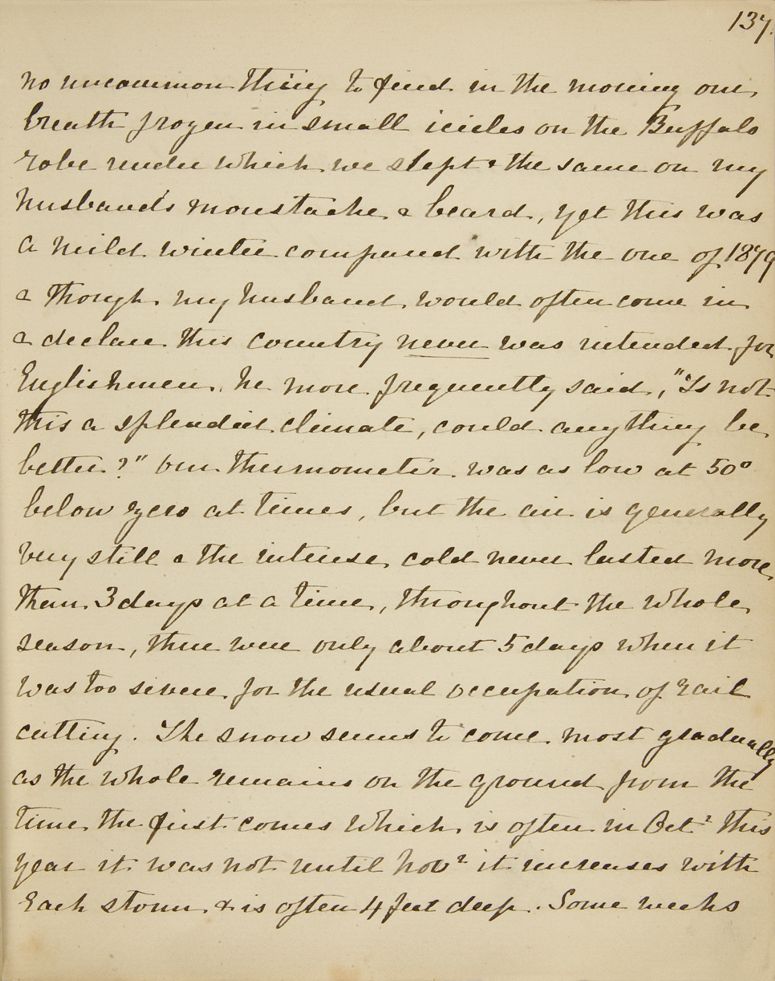 137.
no uncommon thing to find in the morning our
breath frozen in small icicles on the Buffalo
robe under which we slept & the same on my
husband's moustache & beard, yet this was
a mild winter compared with the one of 1879
& though my husband would often come in
& declare this country never was intended for
Englishmen, he more frequently said, "Is not
this a splendid climate, could anything be
better?" Our thermometer was as low at 50°
below zero at times, but the air is generally
very still & the intense cold never lasted more
than 3 days at a time, throughout the whole
season, there were only about 5 days when it
was too severe for the usual occupation of rail
cutting. The snow seems to come most gradually
as the whole remains on the ground from the
time the first comes which is often in Oct.r this
year it was not until Novr it increases with
each storm & is often 4 feet deep. Some weeks